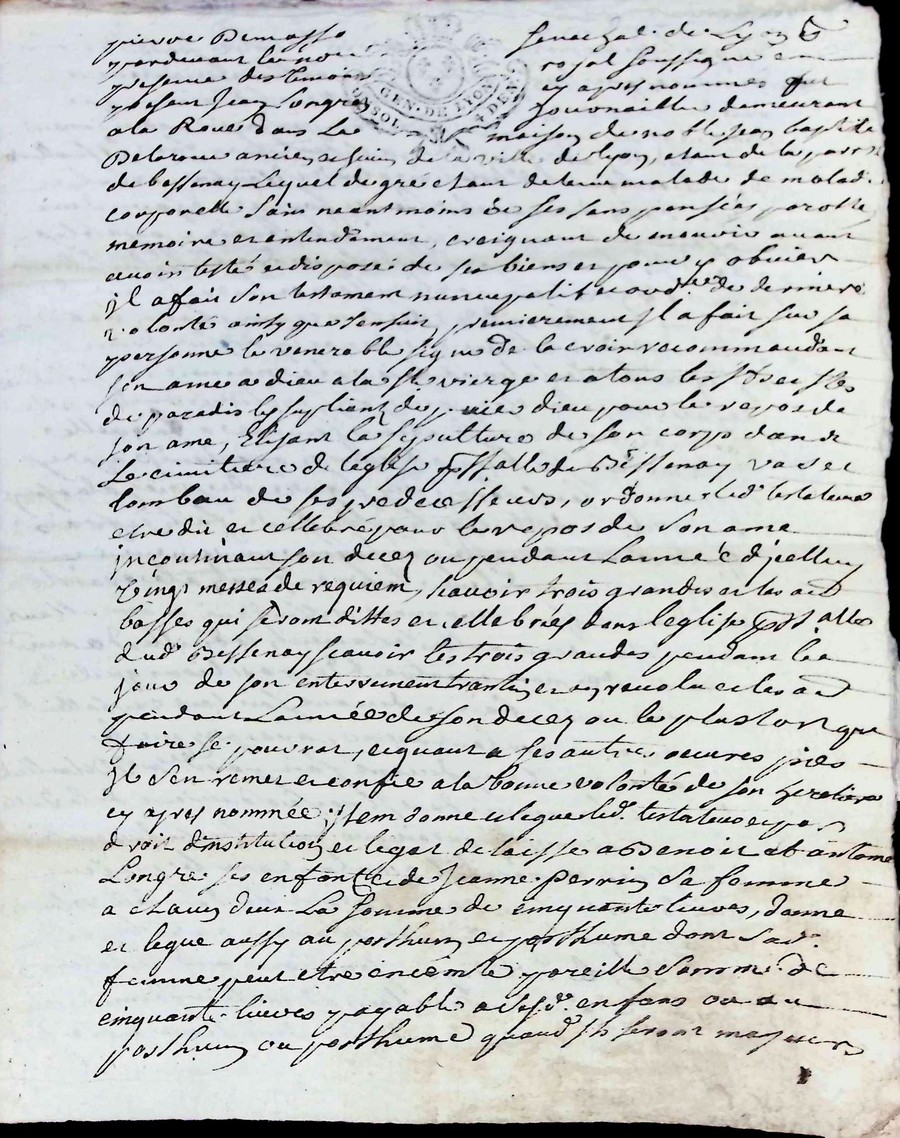 pierre Demasso senechal de Lyon &
pardevant le no.re royal soussigne en
presence des temoins cy apres nommes fut
present Jean Longre journaillier demeurant
a la Roue dans La maison de noble jean baptiste
GEN. DE LYON
SOL 4 DEN
Delaroue ancien echevin de la ville de Lyon, etant de la parr.se
de bessenay Lequel de gré etant detenu malade de malad.
corporelle sain neantmoins de ses sans pensées parolle
memoire et entendement, creignant de mourir avant
avoir testé et disposé de ses biens et pour y obvier
jl a fait son testament nuncupatif et ord.re de derniere
volonté ainsy que sensuit, premierement jl a fait sur sa
personne le venerable signe de la croix recommandant
son ame a dieu a la s.te vierge et a tous les s.ts et s.tes
de paradis les supliant de prier dieu pour le repos de
son ame, Elisant la sepulture de son corps dans
Le cimitiere de leglise paroissialle de Bessenay vas et
tombeau de ses predecesseurs, ordonne led. testateur
etre dit et cellebré pour le repos de son ame
jncontinant son decez ou pendant Lannéé djcelluy
vingt messes de requiem, scavoir trois grandes et les au.
basses qui seront dittes et cellebrées dans leglise paroissialle
dud. Bessenay scavoir les trois grandes pendant le
jour de son enterrement trantin et an revolu et les au.
pendant Lannéé de son decez ou le plustost que
faire se pourrat, et quant a ses autres oeuvres pies
jl s'en remet et confie a la bonne volonté de son heretiere
cy apres nommée; jtem donne et legue led. testateur et par
droit dinstitution et legat delaisse a Benoit et b antoine
Longre ses enfant & de Jeanne Perrin sa femme
a chacun d'eux La somme de cinquante livres, donne
et legue aussy au posthum et posthume dont sad.
femme peut etre enceinte pareille somme de
cinquante livres payable a sesd. enfans ou au
posthum ou posthume quand jls seront majeurs